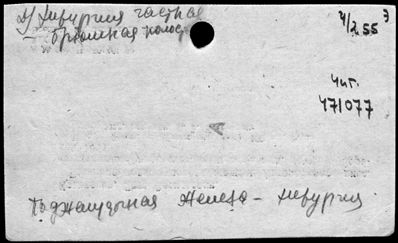 Д) хирургия частная
брюшная полос
4/2 55 э
Чит.
471077
Поджелудочная железа - хирургия.